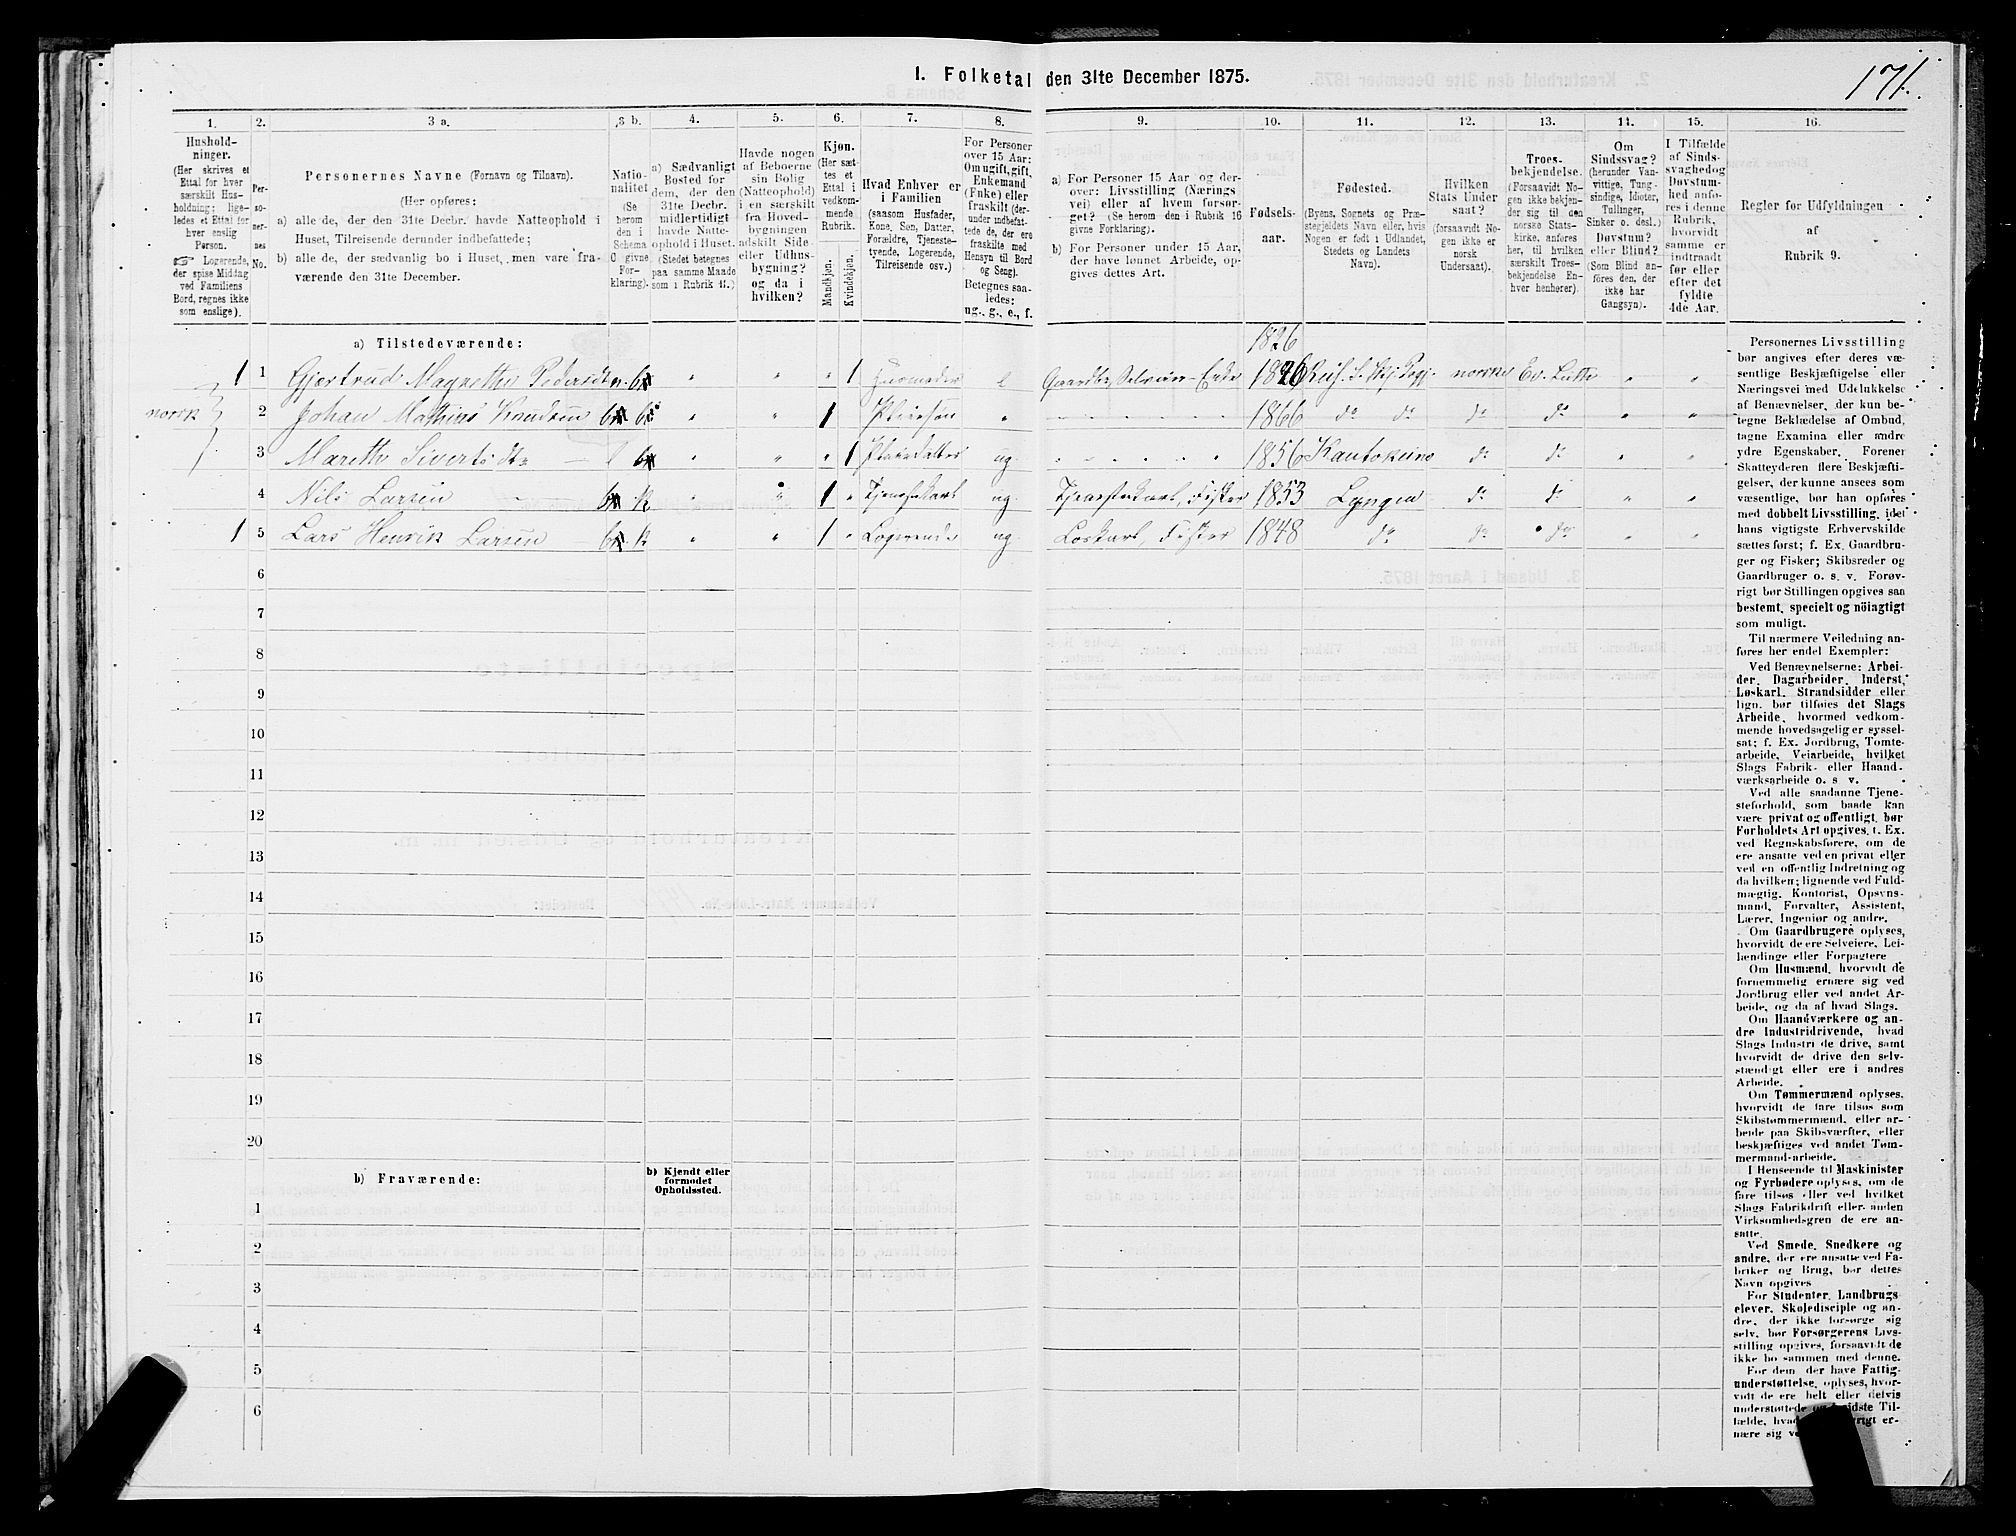 1. Folketal den 31te December 1875.
171.
1.
Hushold-
ninger.
(Her skrives et
Ettal for hver
særskilt Hus-
holdning; lige-
ledes et Ettal for
hver enslig
Person.
☞ Logerende,
der spise Middag
ved Familiens
Bord, regnes ikke
som enslige).
2.
Per-
so-
ner-
nes
No.
3 a.
Personernes Navne (Fornavn og Tilnavn).
(Her opføres:
a) alle de, der den 31te Decbr. havde Natteophold i
Huset, Tilreisende derunder indbefattede;
b) alle de, der sædvanlig bo i Huset, men vare fra-
værende den 31te December.
3 b.
Natio-
nalitet
(Se
herom
den i
Schema
C givne
For-
klaring).
4.
a) Sædvanligt
Bosted for
dem, der den
31te Decbr.
midlertidigt
havde Natte-
ophold i Huset.
(Stedet betegnes
paa samme Maade
som i Rubrik 11.)
5.
Havde nogen
af Beboerne
sin Bolig
(Natteophold)
i en særskilt
fra Hoved-
bygningen
adskilt Side-
eller Udhus-
bygning?
og da i
hvilken?
6.
Kjøn.
(Her sæt-
tes et
Ettal i
vedkom-
mende
Rubrik.
Mandkjøn.
Kvindekjøn.
7.
Hvad Enhver er
i Familien
(saasom Husfader,
Kone, Søn, Datter,
Forældre, Tjeneste-
tyende, Logerende,
Tilreisende osv.)
8.
For Personer
over 15 Aar:
Om ugift, gift,
Enkemand
(Enke) eller
fraskilt (der-
under indbefat-
tede de, der ere
fraskilte med
Hensyn til Bord
og Seng).
Betegnes saa-
ledes:
ug., g., e., f.
9.
a) For Personer 15 Aar og der-
over: Livsstilling (Nærings
vei) eller af hvem forsør-
get? (Se herom den i Rubrik 16
givne Forklaring).
b) For Personer under 15 Aar,
der have lønnet Arbeide, op-
gives dettes Art.
10.
Fødsels-
aar.
11.
Fødested.
(Byens, Sognets og Præ-
stegjeldets Navn eller, hvis
Nogen er født i Udlandet,
Stedets og Landets
Navn).
12.
Hvilken
Stats Under
saat?
(forsaavidt No-
gen ikke er
norsk
Undersaat).
13.
Troes-
bekjendelse.
(Forsaavidt No-
gen ikke bekjen-
der sig til den
norske Stats-
kirke, anføres
her, til hvilken
særskilt Troes-
bekjendelse En-
hver henhører).
14.
Om
Sindssvag?
(herunder Van-
vittige, Tung-
sindige, Idioter,
Tullinger,
Sinker o. desl.)
Døvstum?
eller Blind?
(Som Blind an-
føres den, der
ikke har
Gangsyn).
15.
I Tilfælde
af Sinds-
svaghed og
Døvstum-
hed anfø-
res i denne
Rubrik,
hvorvidt
samme er
indtraadt
før eller
efter det
fyldte
4de Aar.
16.
Regler for Udfyldningen
af
Rubrik 9.
a) Tilstedeværende:
1826
1 1 Gjertrud Magrethe Pedersdtr. " " " 1 Husmoder e Gaardbr. Selveier Enke 1826 norske Ev. Luth. " "
norsk 2 Johan Mathias Knudsen " " 1 Pleiesøn " 1866 do do do do " "
3 Marethe Siverts dtr " " " 1 Pleiedatter ug. 1856 Kautokeino do do " "
4 Nils Larsen " " 1 " Tjenestekarl ug. Tjenestekarl, Fisker 1853 Lyngen do do " "
1 5 Lars Henrik Larsen " " 1 " Logerende ug. Løskarl, Fisker 1848 do do do " "
6
7
8
9
10
11
12
13
14
15
16
17
18
19
20
b) Fraværende:
b) Kjendt eller
formodet
Opholdssted.
1
2
3
4
5
6
Personernes Livsstilling
bør angives efter deres væ-
sentlige Beskjæftigelse eller
Næringsvei med Udelukkelse
af Benævnelser, der kun be-
tegne Beklædelse af Ombud,
tagne Examina eller andre
ydre Egenskaber. Forener
Skatteyderen flere Beskjæfti-
gelser, der kunne ansees som
væsentlige, bør han opføres
med dobbelt Livsstilling, idet
hans vigtigste Erhvervskilde
sættes først; f. Ex. Gaardbru-
ger og Fisker; Skibsreder og
Gaardbruger o. s. v. Forøv-
rigt bør Stillingen opgives saa
bestemt, specielt og nöiagtigt
som muligt.
Til nærmere Veiledning an-
føres her endel Exempler:
Ved Benævnelserne: Arbei-
der, Dagarbeider, Inderst,
Løskarl, Strandsidder eller
lign. bør tilføies det Slags
Arbeide, hvormed vedkom-
mende hovedsagelig er syssel-
sat; f. Ex. Jordbrug, Tomte-
arbeide, Veiarbeide, hvilket
Slags Fabrik- eller Haand-
værksarbeide o. s v.
Ved alle saadanne Tjene-
steforhold, som baade kan
være privat og offentligt, bør
Forholdets Art opgives, t. Ex.
ved Regnskabsførere, om de
ere ansatte ved en privat eller
ved en offentlig Indretning og
da hvilken; lignende ved Fuld-
mægtig, Kontorist, Opsyns-
mand, Forvalter, Assistent,
Lærer, Ingeniør og andre.
Om Gaardbrugere oplyses,
hvorvidt de ere Selveiere, Lei-
lændinge eller Forpagtere
Om Husmænd, hvorvidt de
fornemmelig ernære sig ved
Jordbrug eller ved andet Ar-
beide, og da af hvad Slags.
Om Haandværkere og an-
dre Industridrivende, hvad
Slags Industri de drive, samt
hvorvidt de drive den selv-
stændigt eller ere i andres
Arbeide.
Om Tømmermænd oplyses,
hvorvidt de fare tilsøs som
Skibstømmermænd, eller ar-
beide paa Skibsværfter, eller
beskjæftiges ved andet Tøm-
mermand-arbeide.
I Henseende til Maskinister
og Fyrbødere oplyses, om de
fare tilsøs eller ved hvilket
Slags Fabrikdrift eller anden
Virksomhedsgren de ere an-
satte.
Ved Smede, Snedkere og
andre, der ere ansatte ved Fa-
briker og Brug, bør dettes
Navn opgives
For Studenter, Landbrugs
elever, Skoledisciple og an-
dre, der ikke forsørge sig
selv, bør Forsørgerens Livs-
stilling opgives, forsaavidt de
ikke bo sammen med denne.
For dem, der have Fattig-
understøttelse, oplyses, hvor-
vidt de ere helt eller delvis
understøttede